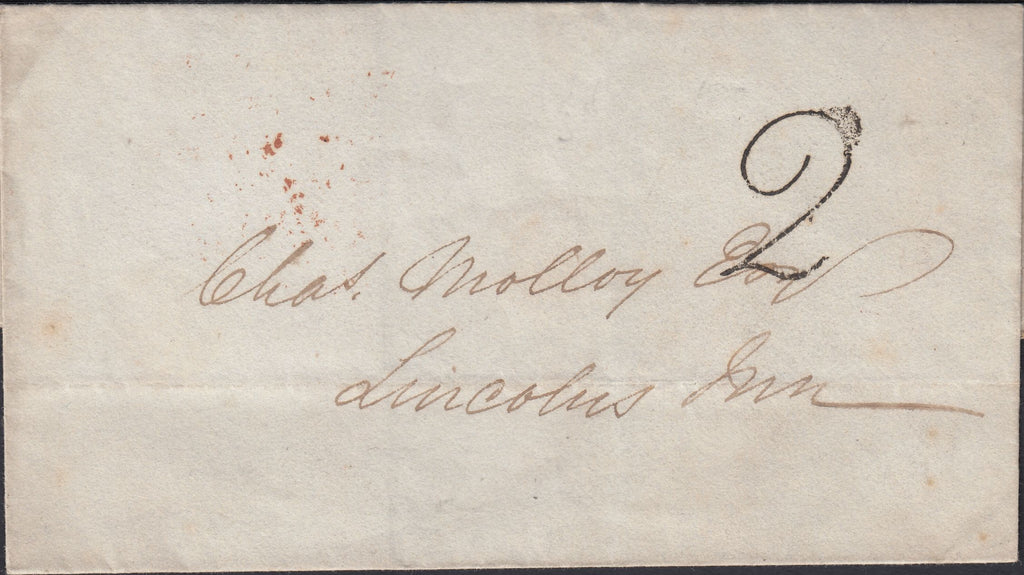 2
Chas. Molloy Esq
Lincolns Inn